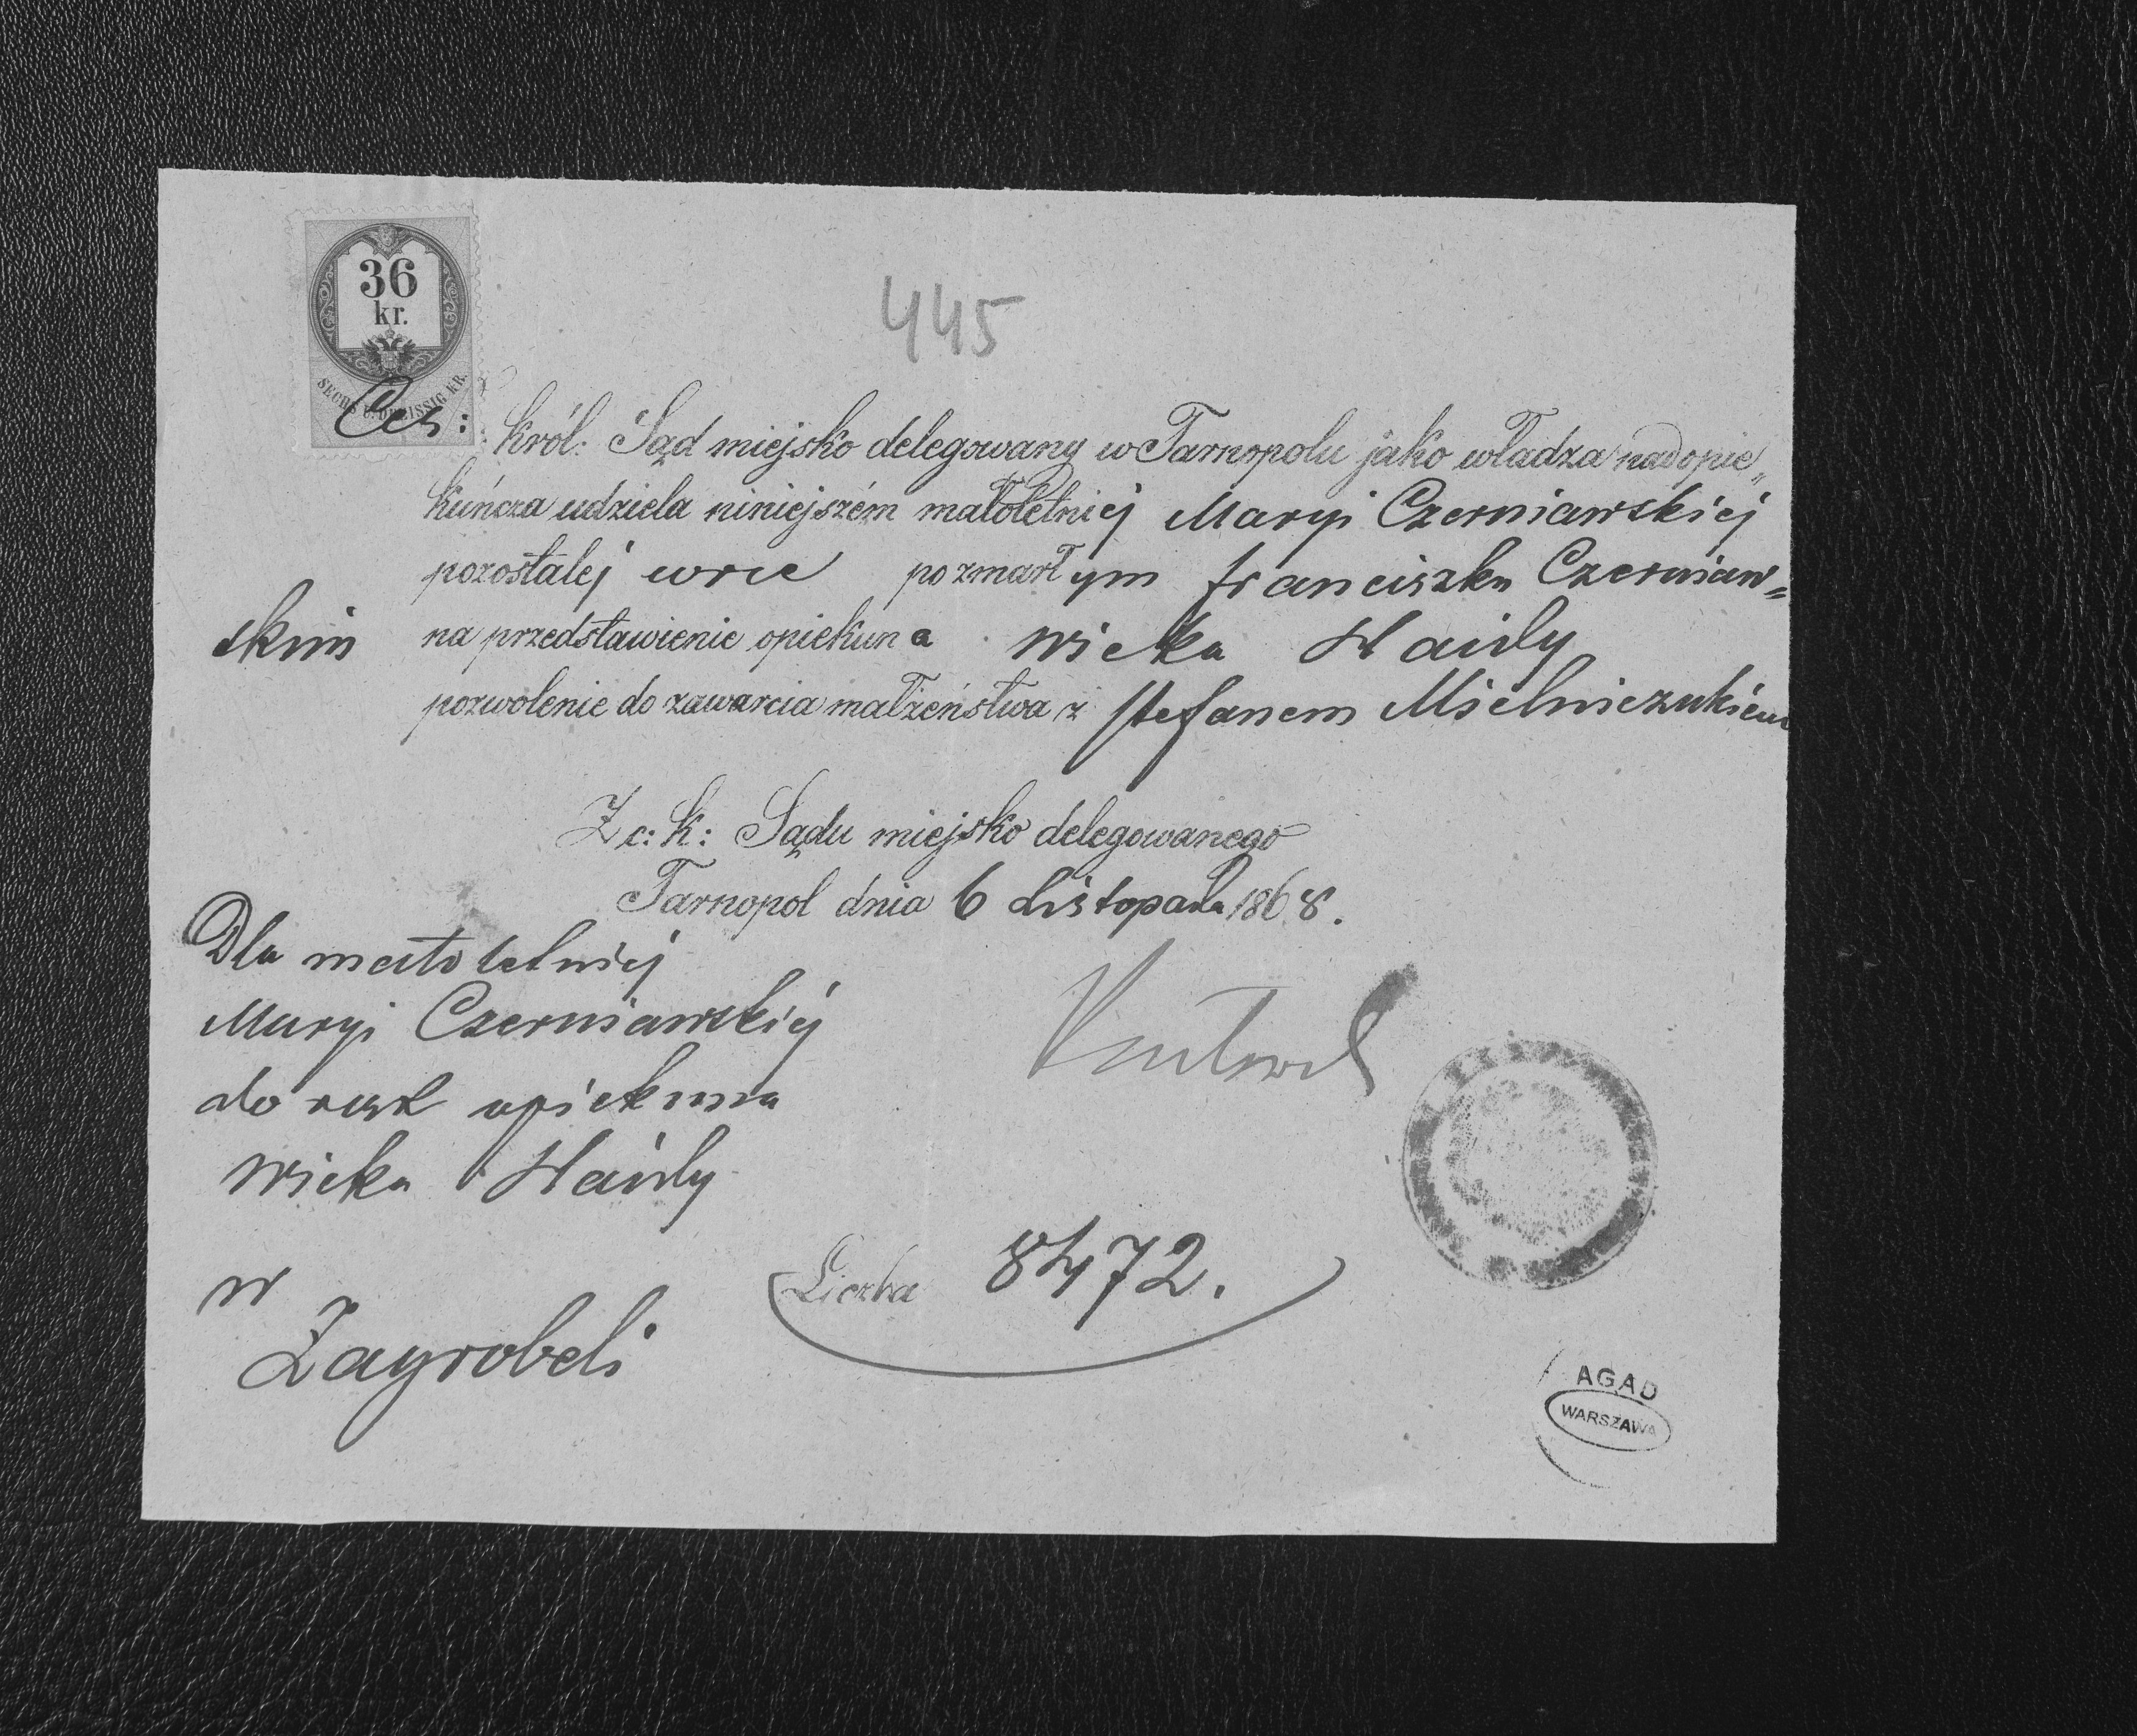 36
kr.
SECHS U. DREISSIG KR.
445
Ces: Król: Sąd miejsko delegowany w Tarnopolu jako władza nadopie„
kuńcza udziela niniejszém małoletniej Maryi Czerniawskiej
pozostałej po zmarłym Franciszku Czerniaw„
skim na przedstawienie opiekuna Wicka Haidy
pozwolenie do zawarcia małżeństwa z Stefanem Mielniczukiem
Z c: k: Sądu miejsko delegowanego
Tarnopol dnia 6 Listopada 1868.
Dla małoletniej
Maryi Czerniawskiej
do rąk opiekuna
Wicka Haidy
w
Zagrobeli
Liczba 8472.
AGAD
WARSZAWA